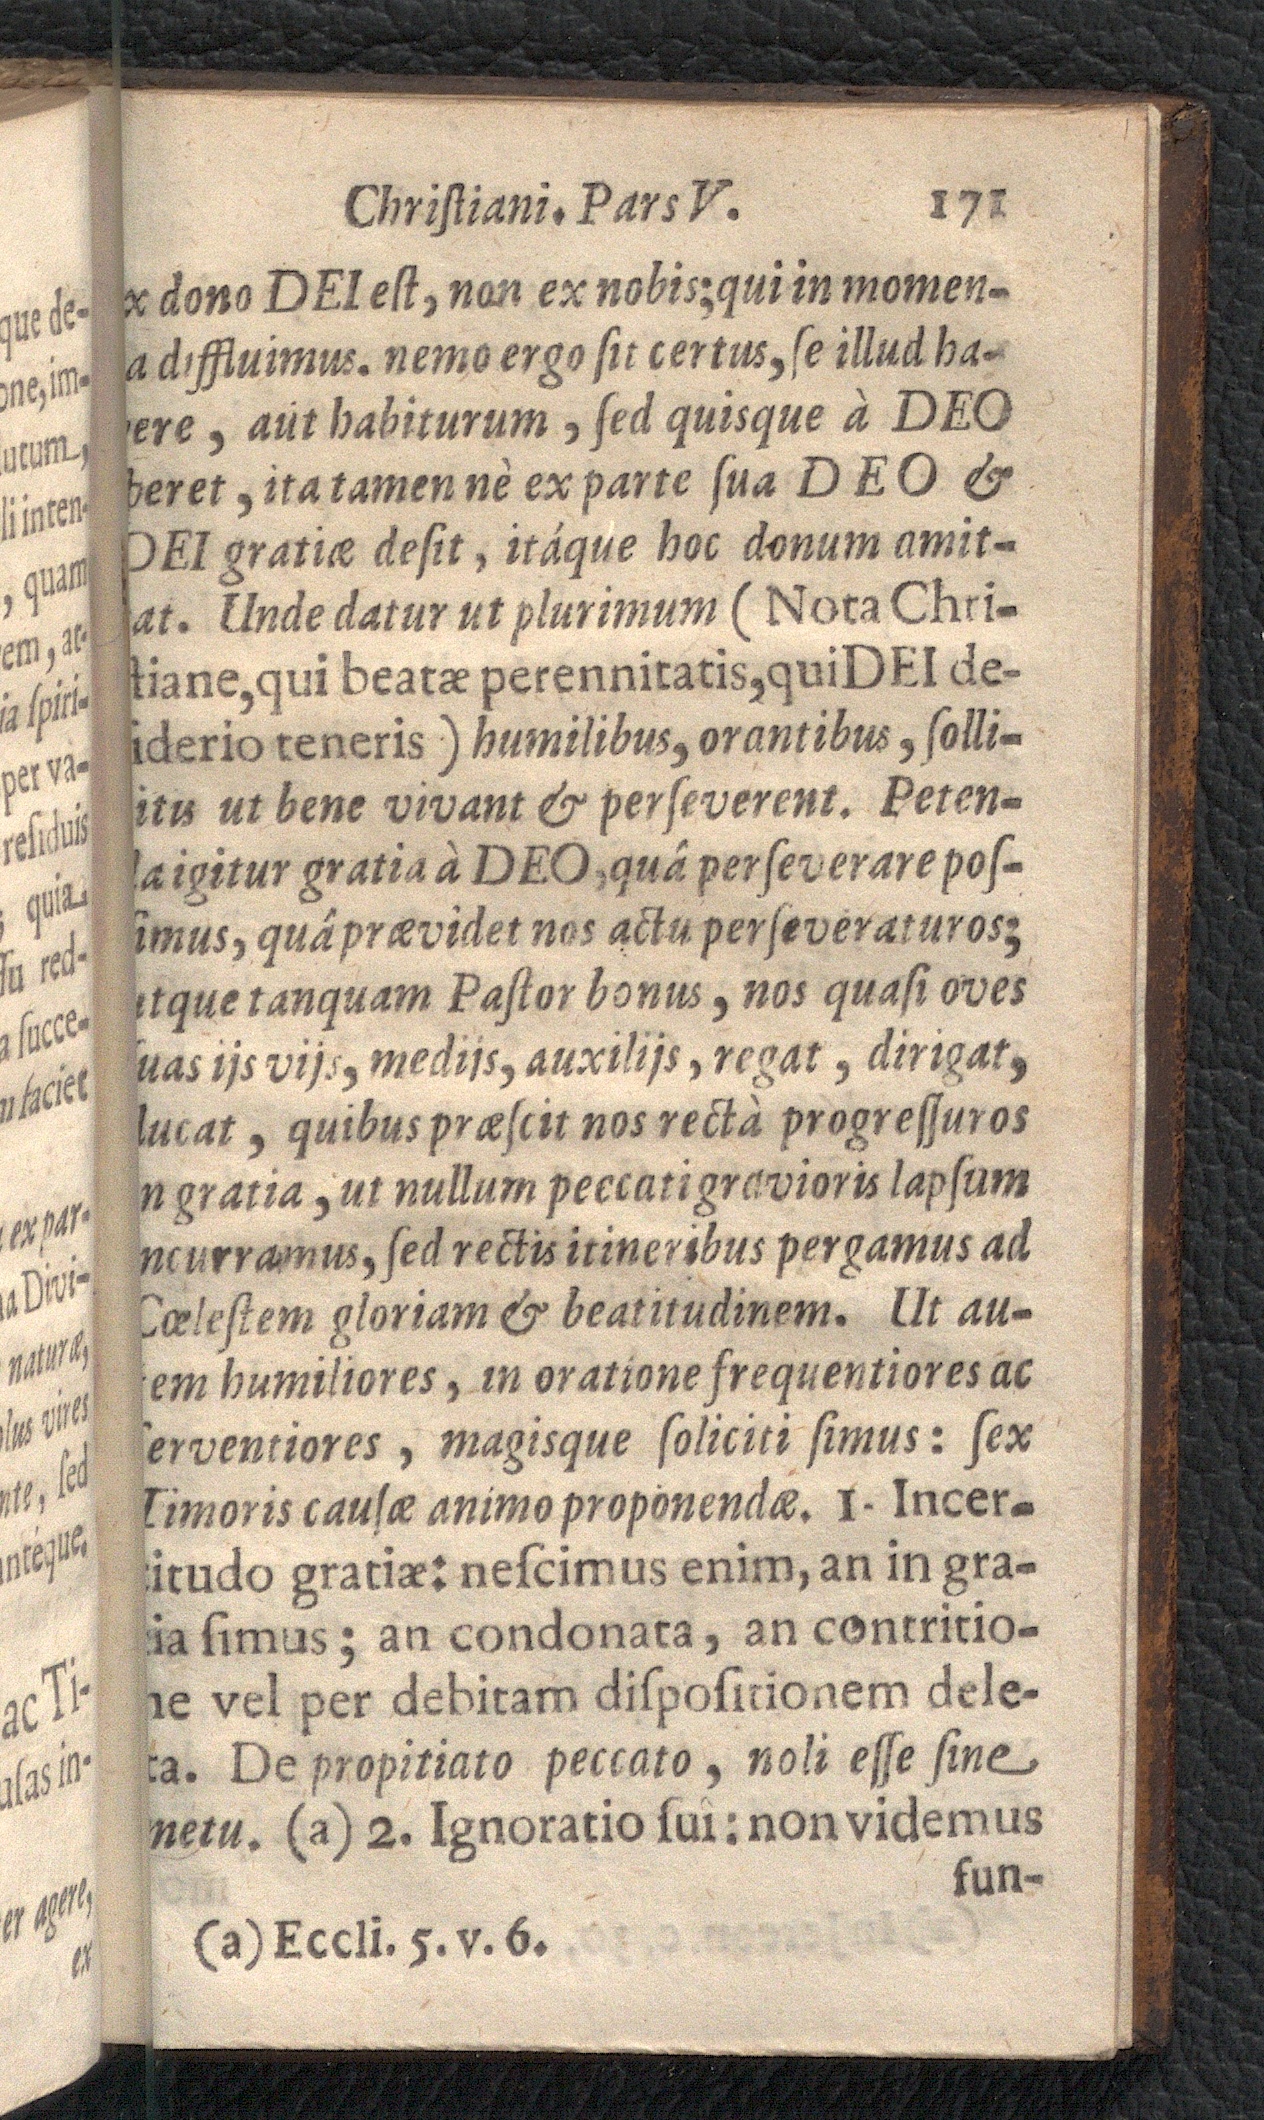 Chriſtiani. Pars V. 171
x dono DEI eſt, non ex nobis; qui in momen-
a diffluimus. nemo ergo ſit certus, ſe illud ha-
bere, aut habiturum, ſed quisque à DEO
ſperet, ita tamen nè ex parte ſua DEO &
DEI gratiæ deſit, itáque hoc donum amit-
tat. Unde datur ut plurimum (Nota Chri-
ſtiane, qui beatæ perennitatis, qui DEI de-
iderio teneris) humilibus, orantibus, ſolli-
itis ut bene vivant & perſeverent. Peten-
da igitur gratia à DEO, quâ perſeverare poſ-
ſimus, quâ prævidet nos actu perſeveraturos;
utque tanquam Paſtor bonus, nos quaſi oves
ſuas ijs vijs, medijs, auxilijs, regat, dirigat,
ducat, quibus præſcit nos rectà progreſſuros
n gratia, ut nullum peccati gravioris lapſum
ncurramus, ſed rectis itineribus pergamus ad
Cœleſtem gloriam & beatitudinem. Ut au-
tem humiliores, in oratione frequentiores ac
ferventiores, magisque ſoliciti ſimus: ſex
Timoris cauſæ animo proponendæ. 1. Incer-
titudo gratiæ: neſcimus enim, an in gra-
tia ſimus; an condonata, an contritio-
ne vel per debitam diſpoſitionem dele-
ta. De propitiato peccato, noli eſſe ſine
metu. (a) 2. Ignoratio ſui: non videmus
fun-
(a) Eccli. 5. v. 6.